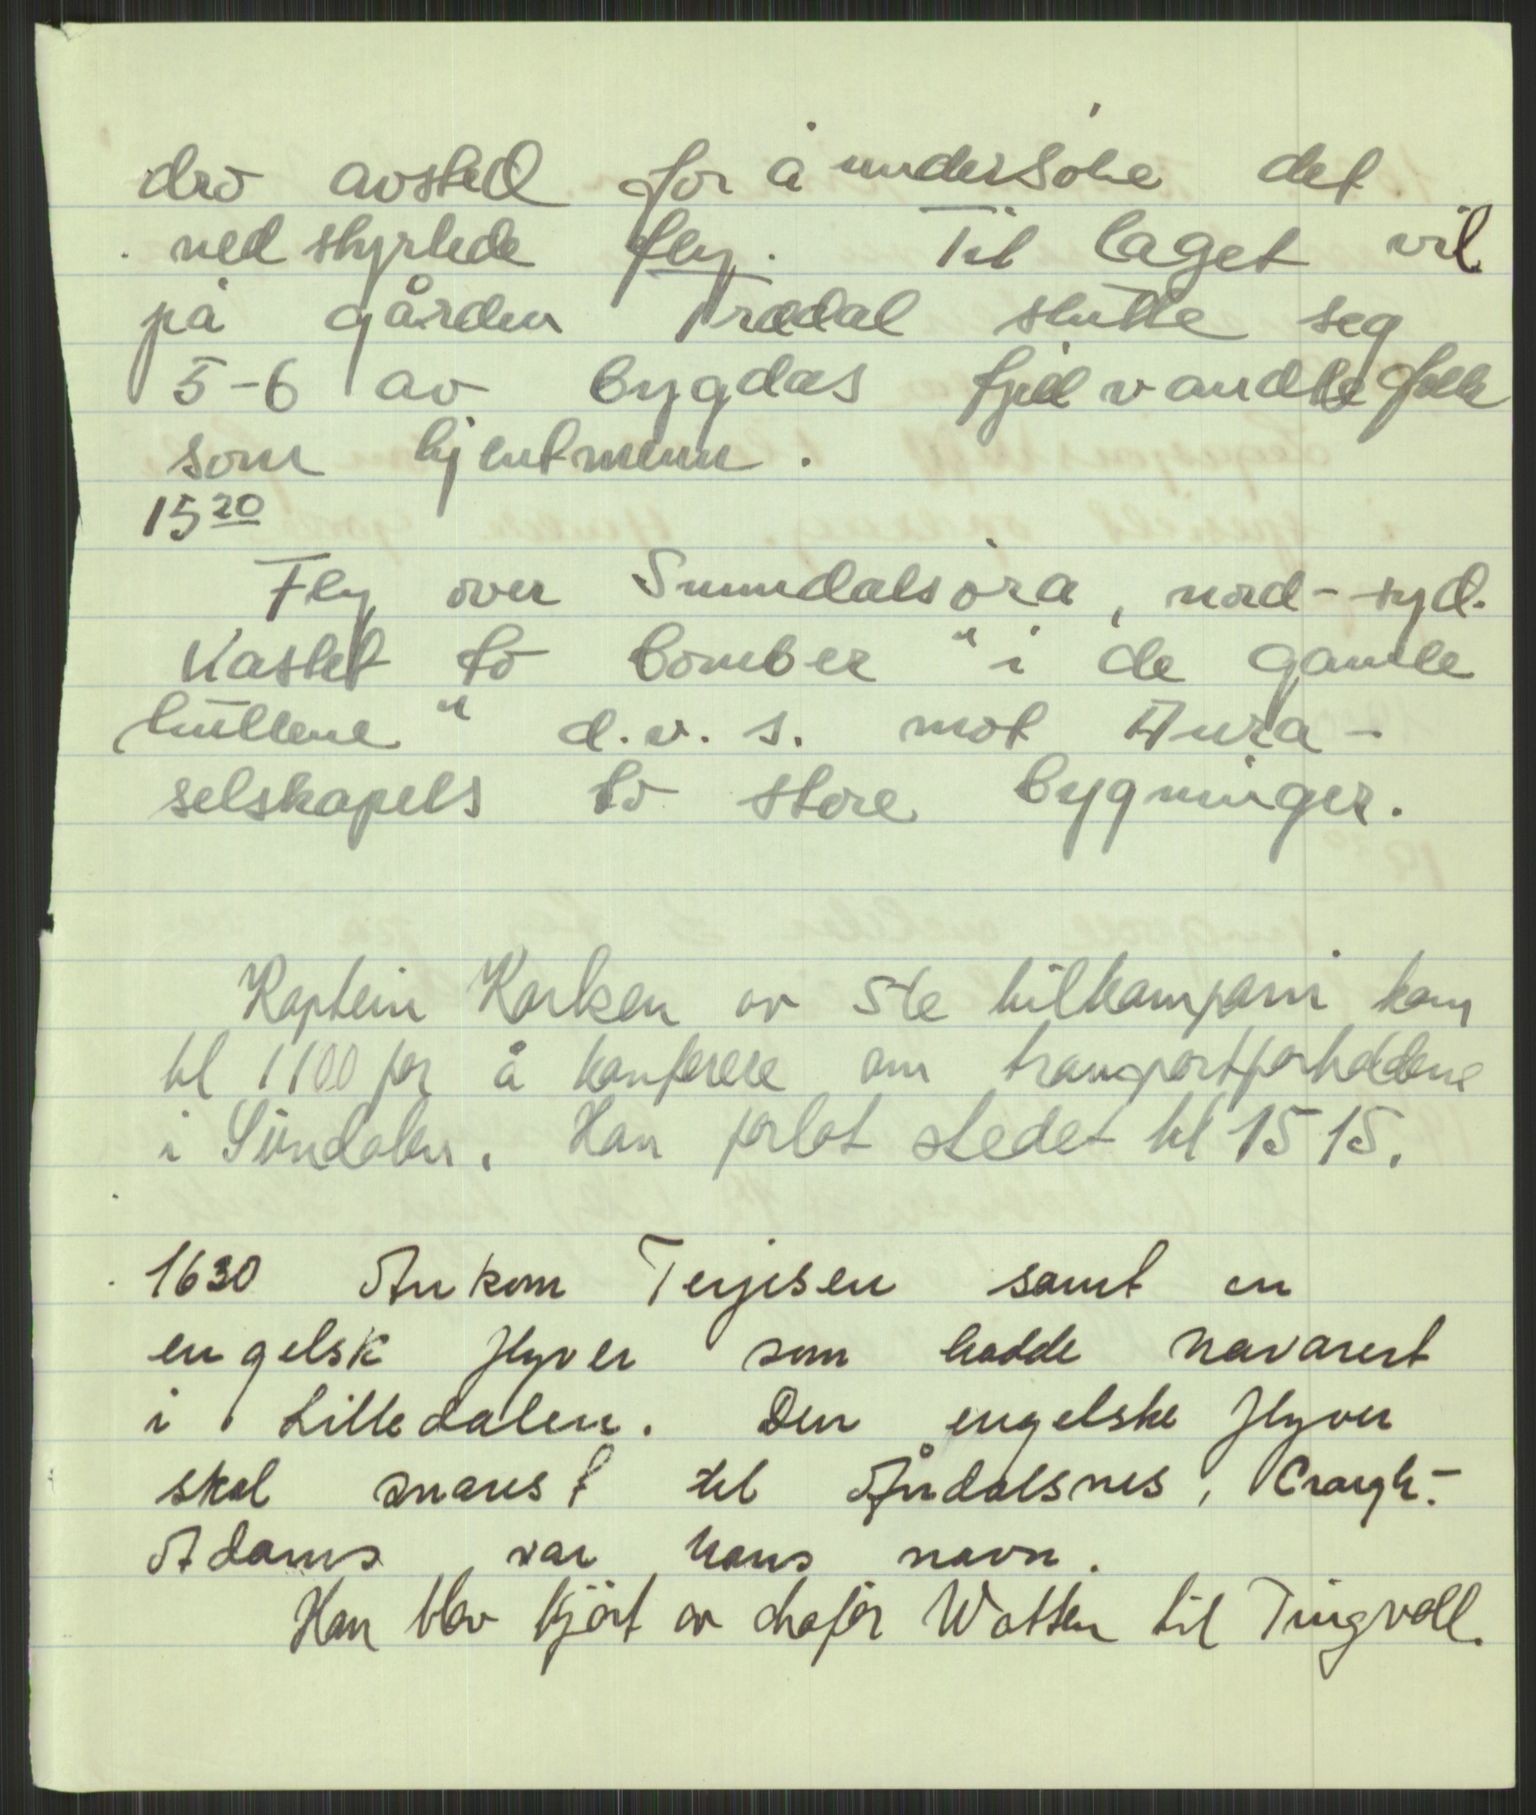 drö avsted for å undersöke det
nedstyrtede fly. Til laget vil
på gården Trædal slutte seg
5-6 av bygdas fjellvandte folk
som kjentmenn.
15 20
Fly over Sunndalsöra, nord-syd.
Kastet to bomber "i de gamle
hullene" d.v.s. mot Aura-
selskapets to store bygninger.
Kaptein Karlsen av 5te bilkompani kom
kl 1100 for å konferere om transportforholdene
i Sündalen. Han forlot stedet kl 1515.
1630 Ankom Terjesen samt en
engelsk flyver som hadde havarert
i Lilledalen. Den engelske flyver
skal snarest til Åndalsnes, Craigh-
Adams var hans navn.
Han blev kjört av chafför Watten til Tingvoll.